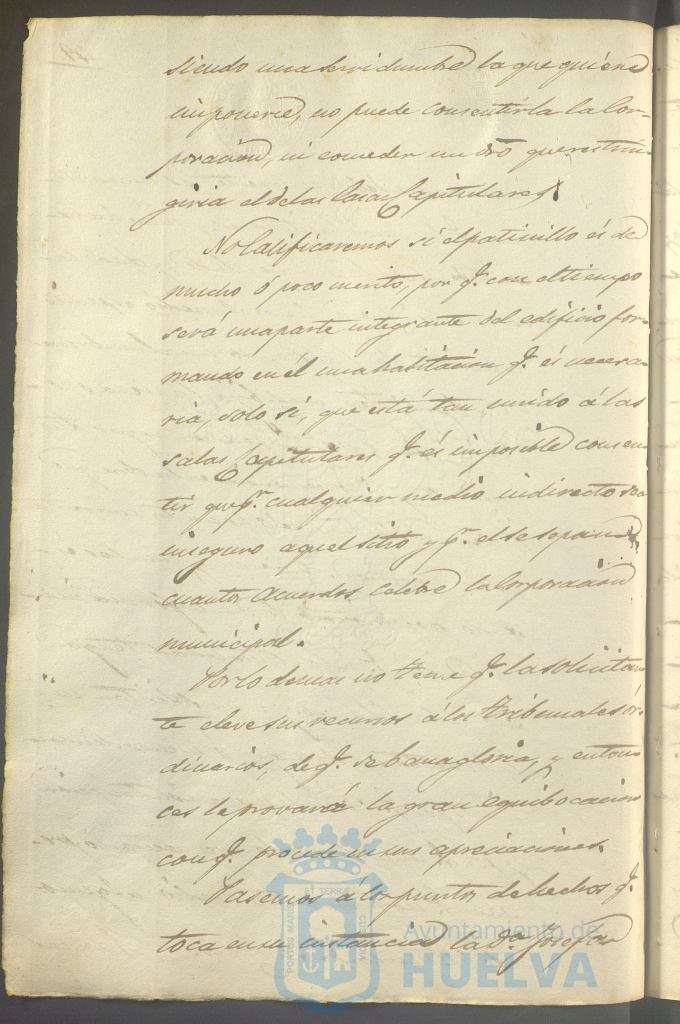 siendo una servidumbre la que quiere
imponerse, no puede consentirla la Cor-
poracion, ni conceder un dro que restrin-
giria el de las Casas Capitulares.
No Calificaremos si el patinillo és de
mucho ó poco merito, por q. con el tiempo
será una parte integrante del edificio for-
mando en él una habitacion q. és necesa-
ria, solo si, que está tan unido á las
salas Capitulares q. és imposible consen-
tir que pr. cualquier medio indirecto sea
inseguro aquel sitio y pr. el se sepan
cuantos acuerdos celebre la Corporacion
municipal.
Por lo demas no teme q. la solicitan-
te eleve sus recursos á los tribunales ór-
dinarios, de q. se banagloria, y enton-
ces le provará la gran equibocacion
con q. procede en sus apreciaciones.
Pasemos á los puntos de hechos q.
toca en su instancia la Da. Josefa
Ayuntamiento de
HUELVA
PORTUS MARIS
ET TERRAE
CUSTODIA